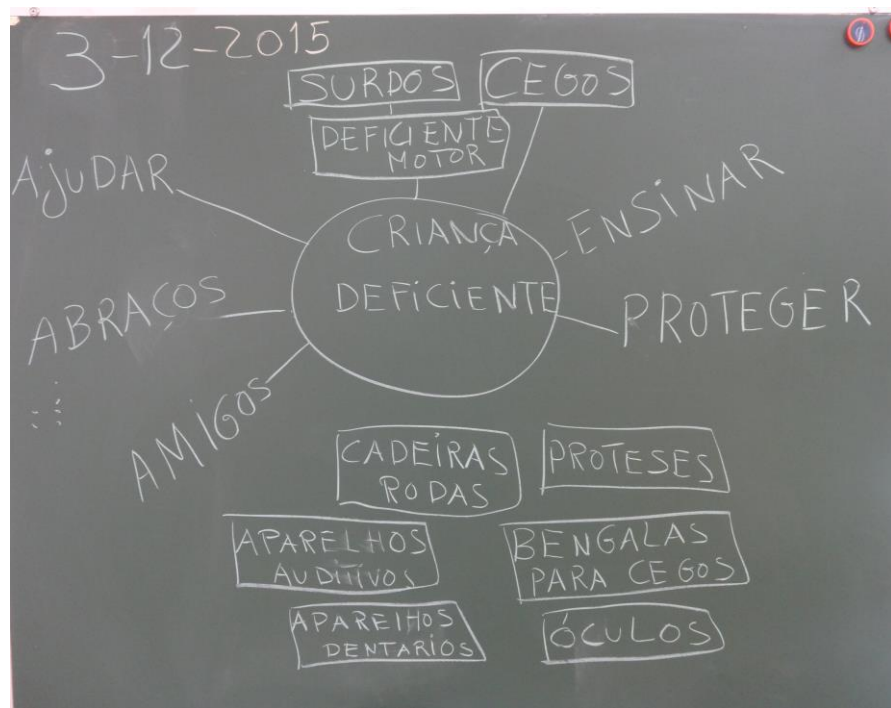 3-12-2015
SURDOS
CEGOS
DEFICIENTE
MOTOR
AjUDAR
ENSiNAR
CRIANÇA
DEFiCiENTE
ABRAÇOS
PROTEGER
AMiGOS
CADEiRAS
RODAS
PROTESES
APARELHOS
AUDiTiVOS
BENGALAS
PARA CEGOS
APAREIHOS
DENTARIOS
ÓCULOS